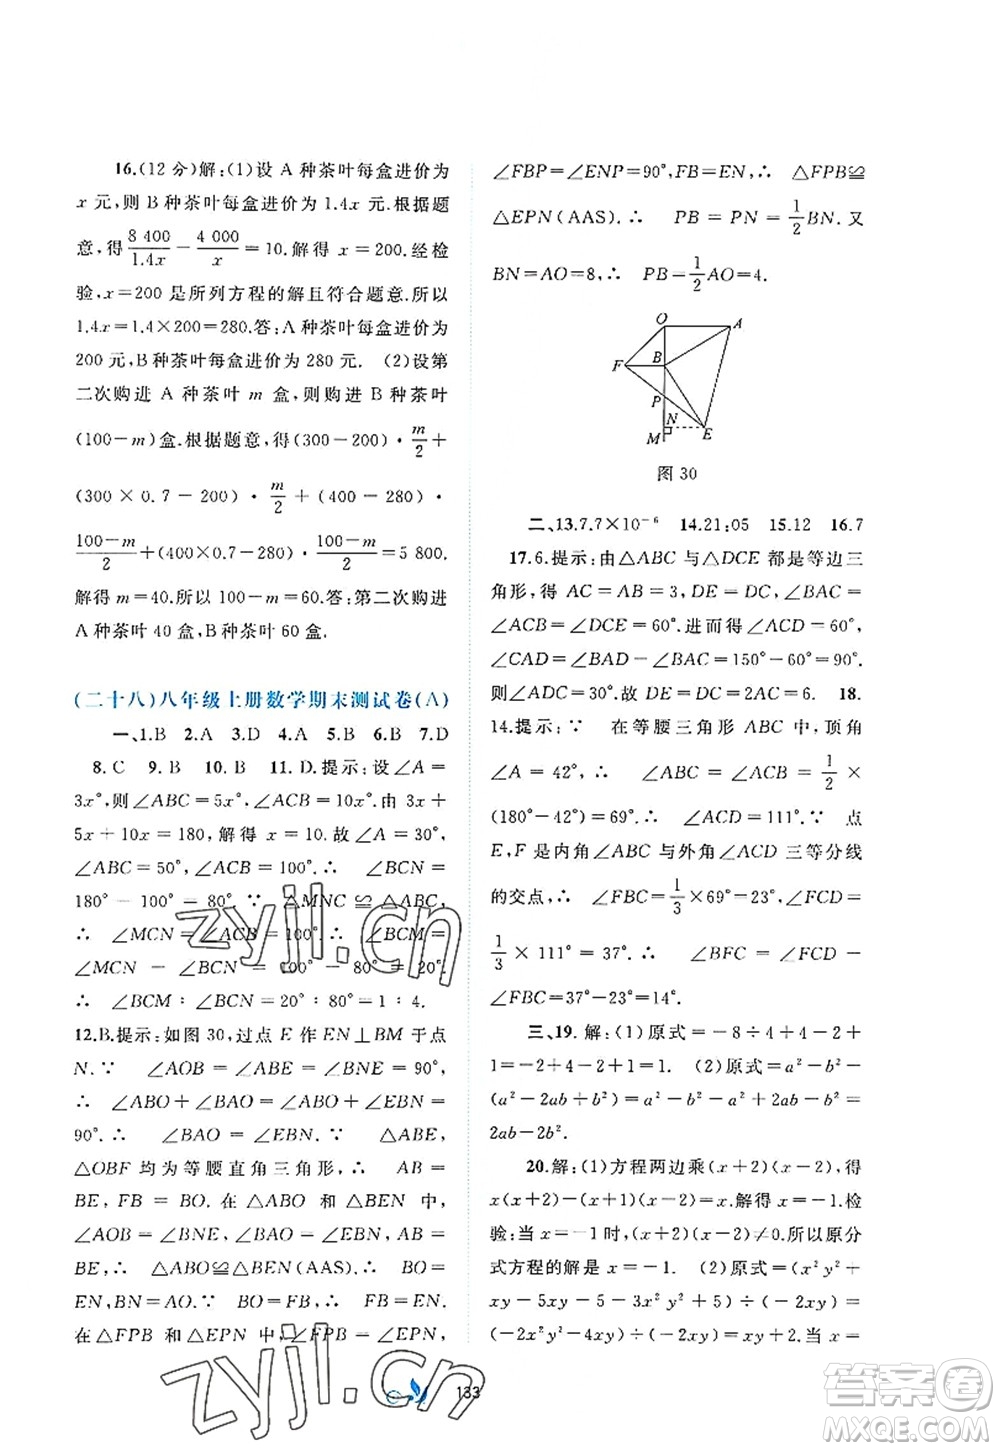 16.(12 分)解:(1)设 A 种茶叶每盒进价为
x 元,则 B 种茶叶每盒进价为 1.4x 元.根据题
意,得 8 400/1.4x − 4 000/x = 10. 解得 x = 200. 经检
验,x=200 是所列方程的解且符合题意.所以
1.4x=1.4×200=280.答:A 种茶叶每盒进价为
200 元,B 种茶叶每盒进价为 280 元. (2)设第
二次购进 A 种茶叶 m 盒,则购进 B 种茶叶
(100−m)盒.根据题意,得(300−200)·m/2+
(300×0.7−200)·m/2+(400−280)·
(100−m)/2+(400×0.7−280)·(100−m)/2=5 800.
解得 m=40.所以 100−m=60.答:第二次购进
A 种茶叶 40 盒,B 种茶叶 60 盒.
(二十八)八年级上册数学期末测试卷(A)
一、1.B 2.A 3.D 4.A 5.B 6.B 7.D
8.C 9.B 10.B 11.D.提示:设∠A=
3x°,则∠ABC=5x°,∠ACB=10x°.由 3x+
5x+10x=180,解得 x=10.故∠A=30°,
∠ABC=50°,∠ACB=100°.∴ ∠BCN=
180°−100°=80°.∵ △MNC≌△ABC,
∴ ∠MCN=∠ACB=100°.∴ ∠BCM=
∠MCN−∠BCN=100°−80°=20°.
∴ ∠BCM∶∠BCN=20°∶80°=1∶4.
12.B.提示:如图 30,过点 E 作 EN⊥BM 于点
N.∵ ∠AOB=∠ABE=∠BNE=90°,
∴ ∠ABO+∠BAO=∠ABO+∠EBN=
90°.∴ ∠BAO=∠EBN.∵ △ABE,
△OBF 均为等腰直角三角形,∴ AB=
BE,FB=BO.在△ABO 和△BEN 中,
∠AOB=∠BNE,∠BAO=∠EBN,AB=
BE,∴ △ABO≌△BEN(AAS).∴ BO=
EN,BN=AO.∵ BO=FB,∴ FB=EN.
在△FPB 和△EPN 中,∠FPB=∠EPN,
∠FBP=∠ENP=90°,FB=EN,∴ △FPB≌
△EPN(AAS).∴ PB=PN=1/2BN.又
BN=AO=8,∴ PB=1/2AO=4.
O A
F B
P N
M E
图 30
二、13.7.7×10⁻⁶ 14.21:05 15.12 16.7
17.6.提示:由△ABC 与△DCE 都是等边三
角形,得 AC=AB=3,DE=DC,∠BAC=
60°,∠DCE=60°.进而得∠ACD=60°.
∴ ∠CAD=∠BAD−∠BAC=150°−60°=90°.
则∠ADC=30°.故 DE=DC=2AC=6. 18.
14.提示:∵ 在等腰三角形 ABC 中,顶角
∠A=42°,∴ ∠ABC=∠ACB=1/2×
(180°−42°)=69°.∴ ∠ACD=111°.∵ 点
E,F 是内角∠ABC 与外角∠ACD 三等分线
的交点,∴ ∠FBC=1/3×69°=23°,∠FCD=
1/3×111°=37°.∴ ∠BFC=∠FCD−
∠FBC=37°−23°=14°.
三、19.解:(1)原式=−8÷4+4−2+
1=−2+4−2+1=1. (2)原式=a²−b²−
(a²−2ab+b²)=a²−b²−a²+2ab−b²=
2ab−2b².
20.解:(1)方程两边乘(x+2)(x−2),得
x(x+2)=(x+2)(x−2)−x.解得 x=−1.检
验:当 x=−1 时,(x+2)(x−2)≠0.所以原分
式方程的解是 x=−1. (2)原式=(x²y²+
xy−5xy−5−3x²y²+5)÷(−2xy)=
(−2x²y²−4xy)÷(−2xy)=xy+2.当 x=
133
zyjl.cn
答案卷
MXQE.COM